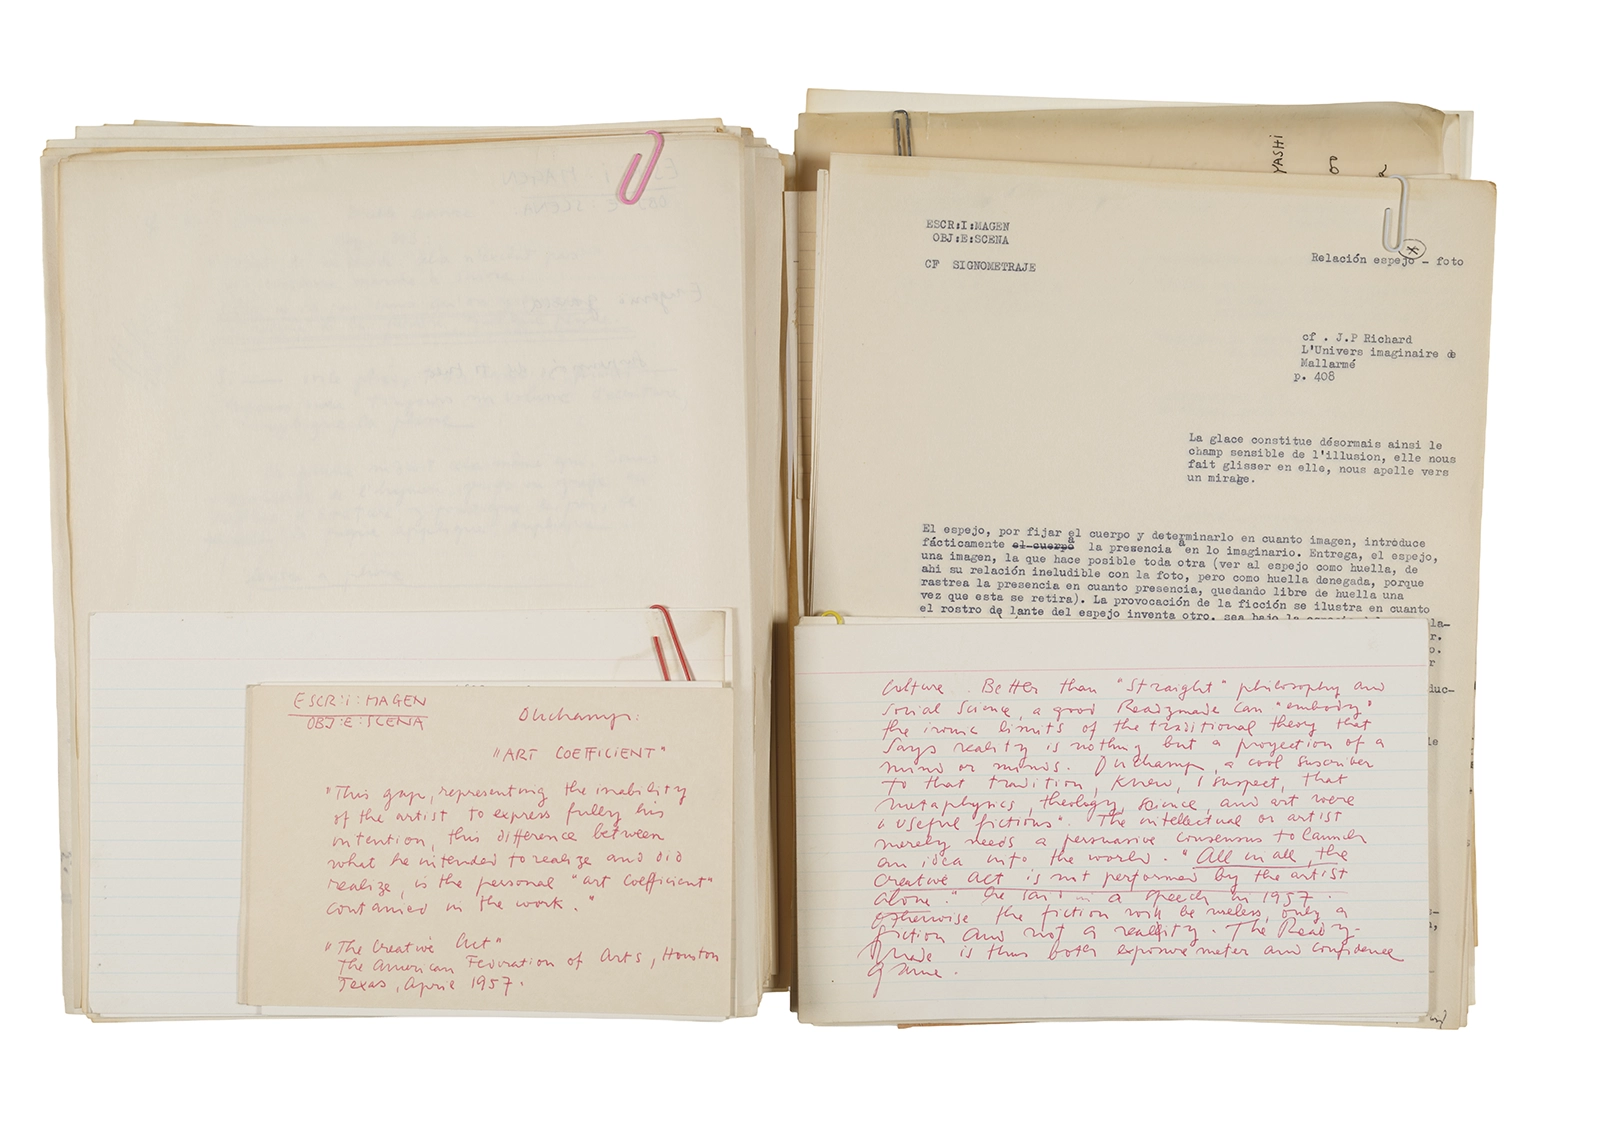 ESCR:i:MAGEN
OBJ:E:SCENA
Duchamp:
"ART COEFFICIENT"
"This gap, representing the inability
of the artist to express fully his
intention, this difference between
what he intended to realize and did
realize, is the personal "art coefficient"
contained in the work."
"The Creative Act"
The American Federation of Arts, Houston
Texas, April 1957.
YASHI
ESCR:I:MAGEN
OBJ:E:SCENA
CF SIGNOMETRAJE
Relación espejo - foto
cf . J.P Richard
L'Univers imaginaire de
Mallarmé
p. 408
La glace constitue désormais ainsi le
champ sensible de l'illusion, elle nous
fait glisser en elle, nous apelle vers
un mirage.
El espejo, por fijar el cuerpo y determinarlo en cuanto imagen, introduce
fácticamente el cuerpo a la presencia a en lo imaginario. Entrega, el espejo,
una imagen, la que hace posible toda otra (ver al espejo como huella, de
ahi su relación ineludible con la foto, pero como huella denegada, porque
rastrea la presencia en cuanto presencia, quedando libre de huella una
vez que esta se retira). La provocación de la ficción se ilustra en cuanto
el rostro de lante del espejo inventa otro, sea bajo la
culture. Better than "straight" philosophy and
social science, a good Readymade can "embody"
the ironic limits of the traditional theory that
says reality is nothing but a proyection of a
mind or minds. Duchamp, a cool suscriber
to that tradition, knew, I suspect, that
metaphysics, theology, science, and art were
"useful fictions". The intellectual or artist
merely needs a persuasive consensus to launch
an idea into the world. "All in all, the
creative act is not performed by the artist
alone." he said in a speech in 1957.
otherwise the fiction will be useless, only a
fiction and not a reality. The Ready-
made is thus both exposure meter and confidence
game.